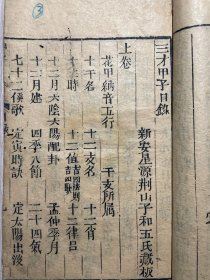 三才甲子目錄
新安星源荆山子和五氏藏板
上卷
花甲納音五行 干支所屬
十干名 十二支名 十二肖
十二時 十二值 十二律呂
十二月大陸太陽配卦 孟仲季月
十二月建 四季八節 二十四氣
七十二候歌 定寅時訣 定太陽出沒